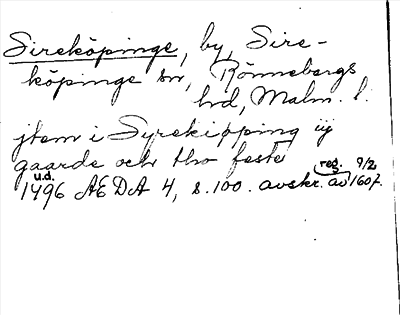 Sireköpinge, by, Sire-
köpinge sn, Rönnebergs
hd, Malm. l.
jtem i Syrekipping iij
gaarde och tho feste
u.d. reg. 9/2
1496 AEDA 4, s. 100. avskr. av 1607.